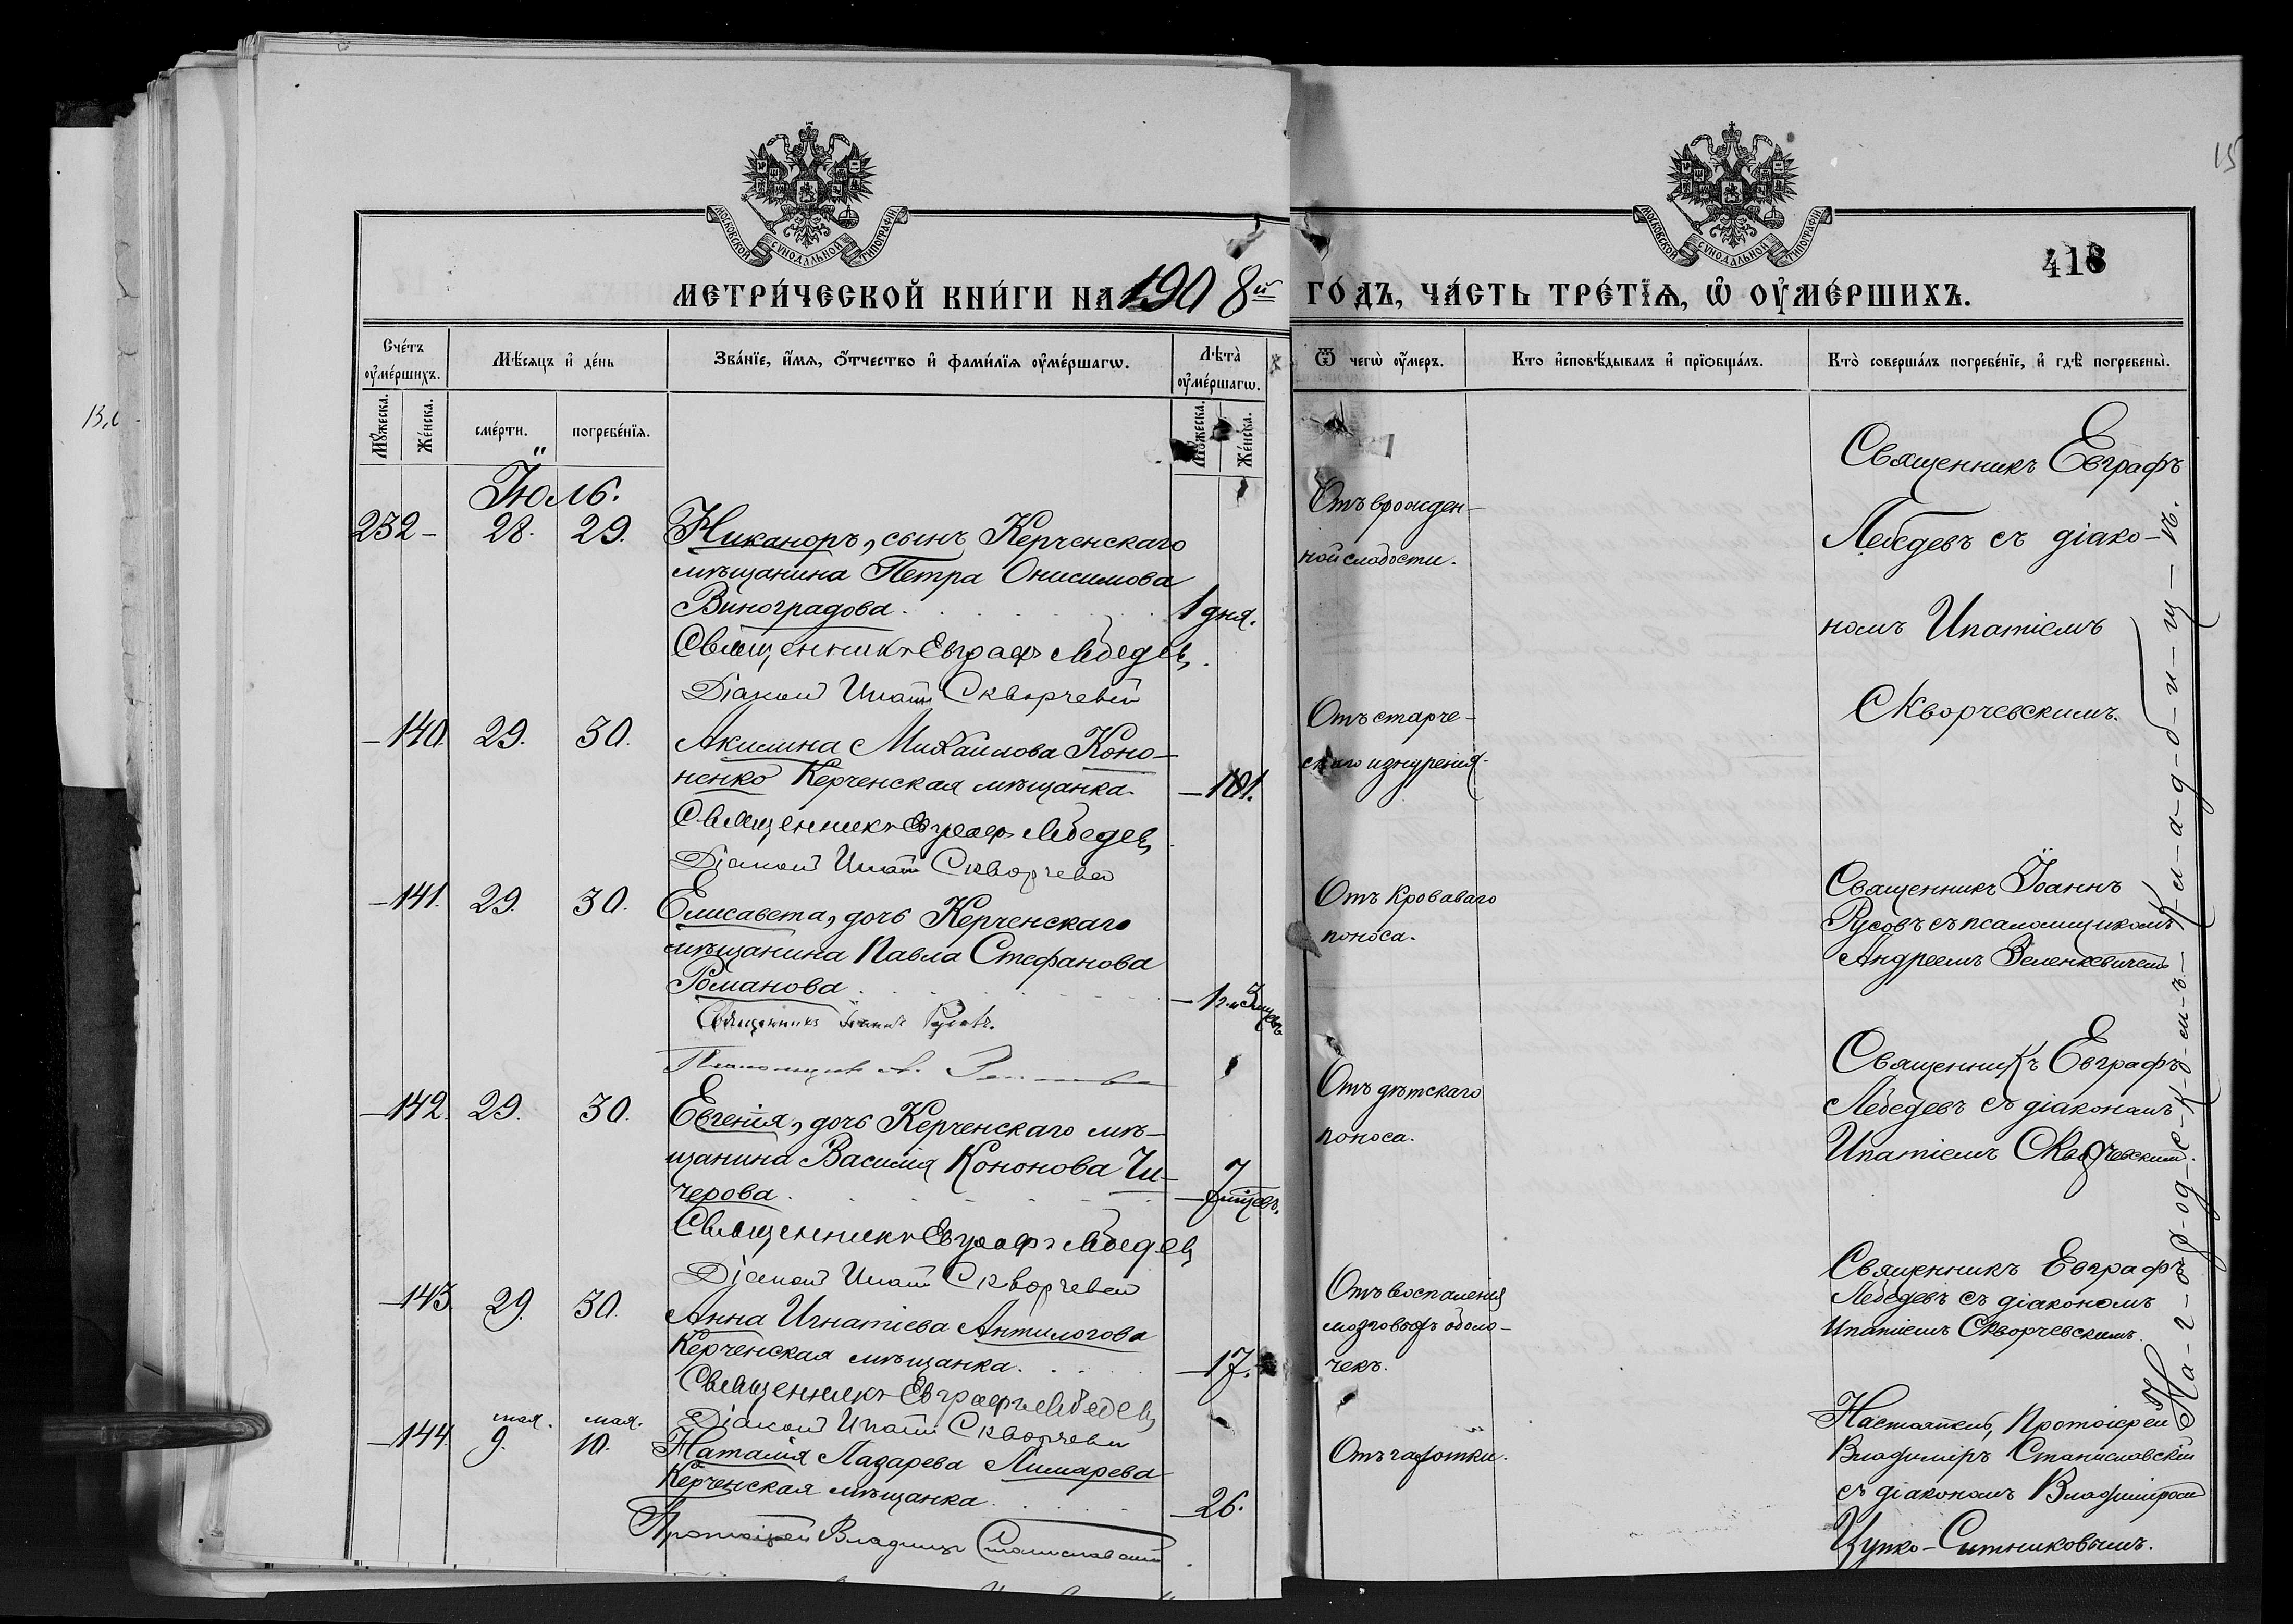 15
МОСКОВСКОЙ СУНОДАЛЬНОЙ ТИПОГРАФІИ.
МОСКОВСКОЙ СУНОДАЛЬНОЙ ТИПОГРАФІИ.
418
МЕТРИ́ЧЕСКОЙ КНИ́ГИ НА 1908й ГО́ДЪ, ЧА́СТЬ ТРЕ́ТІѦ, Ѡ҆ ОУ҆МЕ́РШИХЪ.
Сче́тъ оу҆ме́ршихъ.
Мѣ́сяцъ и҆ де́нь
Зва́нїе, и҆́мѧ, ѻ҆́тчество и҆ фами́лїѧ оу҆ме́ршагѡ.
Лѣ́та оу҆ме́ршагѡ.
Ѿ чегѡ̀ оу҆́меръ.
Кто̀ и҆сповѣ́дывалъ и҆ прїѡбща́лъ.
Кто̀ соверша́лъ погребе́нїе, и҆ гдѣ̀ погребены̀.
Мꙋ́жеска.
Же́нска.
сме́рти.
погребе́нїѧ.
Мꙋ́жеска.
Же́нска.
Іюль.
232 – 28. 29. Никаноръ, сынъ Керченскаго
мѣщанина Петра Онисимова
Виноградова. 1 дня.
Священникъ Евграфъ Лебедевъ.
Діаконъ Ипатій Скворчевскій
Отъ врожден-
ной слабости.
Священникъ Евграфъ
Лебедевъ съ діако-
номъ Ипатіемъ
Скворчевскимъ.
– 140. 29. 30. Акилина Михайлова Коно-
ненко Керченская мѣщанка. – 101.
Священникъ Евграфъ Лебедевъ
Діаконъ Ипатій Скворчевскій
Отъ старче-
скаго изнуренія.
– 141. 29. 30. Елисавета, дочь Керченскаго
мѣщанина Павла Стефанова
Романова.
Священникъ Іоаннъ Русовъ.
Псаломщикъ А.
Отъ кроваваго
поноса.
Священникъ Іоаннъ
Русовъ съ псаломщикомъ
Андреемъ Зеленкевичемъ
– 142. 29. 30. Евгенія, дочь Керченскаго мѣ-
щанина Василія Кононова Чи-
черова. – 7 мѣсцевъ.
Священникъ Евграфъ Лебедевъ
Діаконъ Ипатій Скворчевскій
Отъ дѣтскаго
поноса.
Священникъ Евграфъ
Лебедевъ съ діакономъ
Ипатіемъ Скворчевскимъ.
– 143. 29. 30. Анна Игнатіева Антилогова
Керченская мѣщанка. – 17.
Священникъ Евграфъ Лебедевъ
Діаконъ Ипатій Скворчевскій
Отъ воспаленія
мозговыхъ оболо-
чекъ.
Священникъ Евграфъ
Лебедевъ съ діакономъ
Ипатіемъ Скворчевскимъ.
мая. мая.
– 144. 9. 10. Наталія Лазарева Лимарева
Керченская мѣщанка. – 26.
Протоіерей Владиміръ Станиславскій
Отъ чахотки.
Настоятель, Протоіерей
Владиміръ Станиславскій
съ діакономъ Владиміромъ
Цупко-Ситниковымъ.
На-г-о-р-од-с-к-о-м-ъ- К-л-а-д-б-и-щ-ѣ.